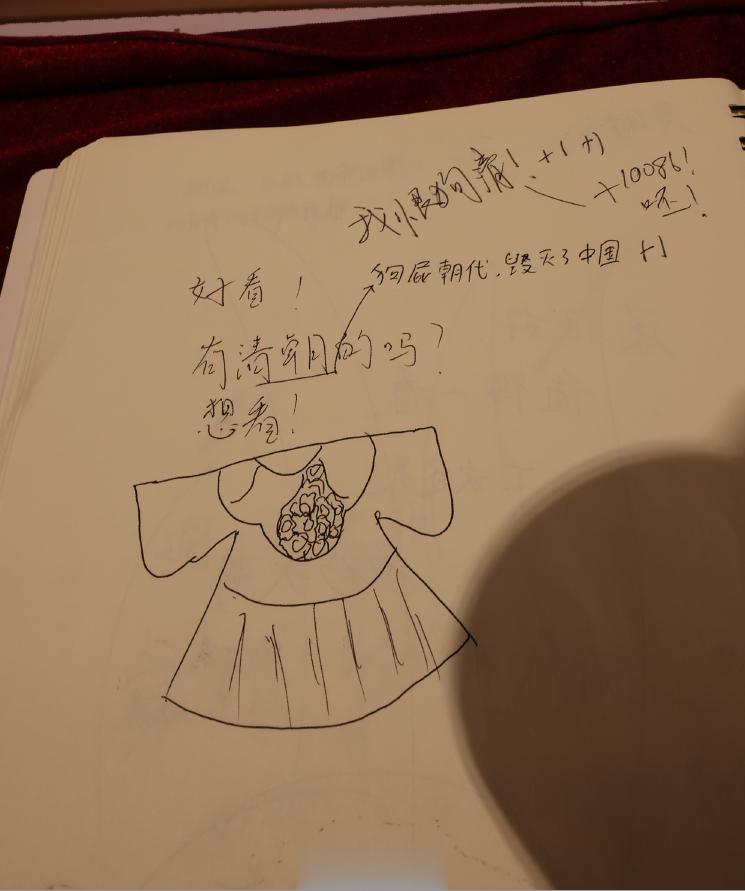 我恨狗鞑! +1 +1
+10086!
呸!
好看!
狗屁朝代,毁灭了中国 +1
有清朝的吗?
想看!